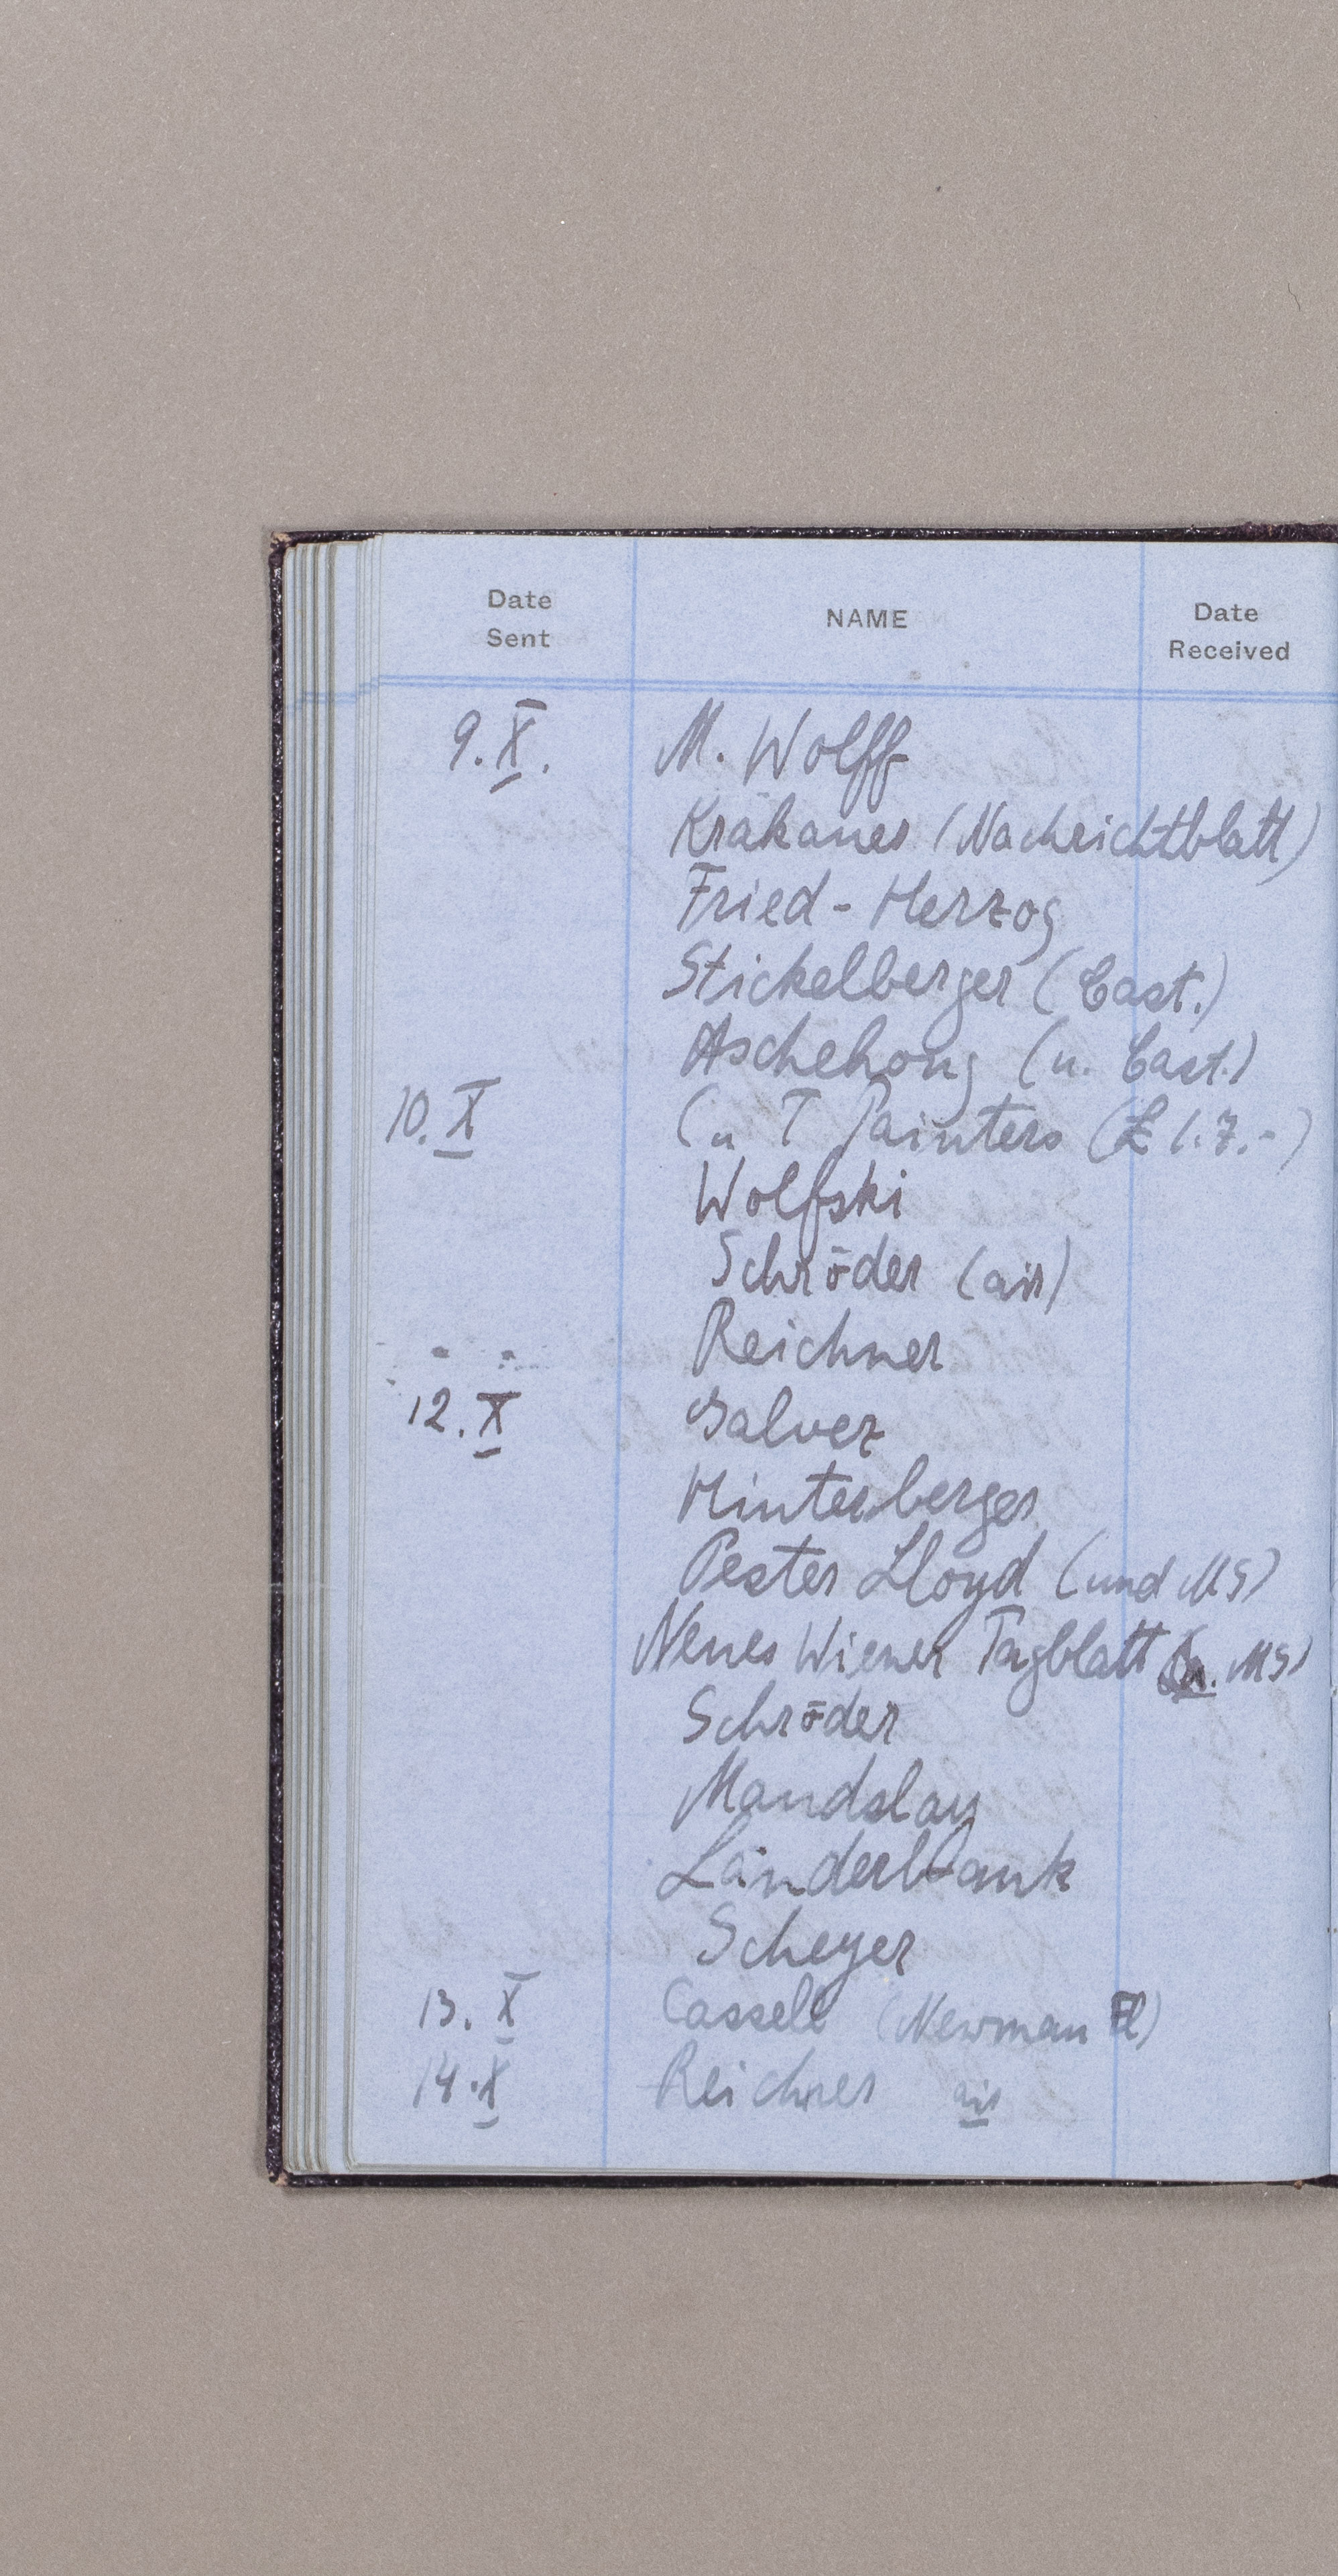 Date Sent NAME Date Received
9.X. M. Wolff
Krakauer (Nachrichtblatt)
Fried - Herzog
Stickelberger (Cast.)
Aschehoug (u. Cast.)
10. X C u T Painters (£ 1.7.-)
Wolfski
Schröder (air)
Reichner
12. X Galvez
Hinterberger
Pester Lloyd (und MS)
Neues Wiener Tagblatt (u. MS)
Schröder
Mandslay
Länderbank
Scheyer
13. X Cassell (Newman Fl)
14. X Reichner air